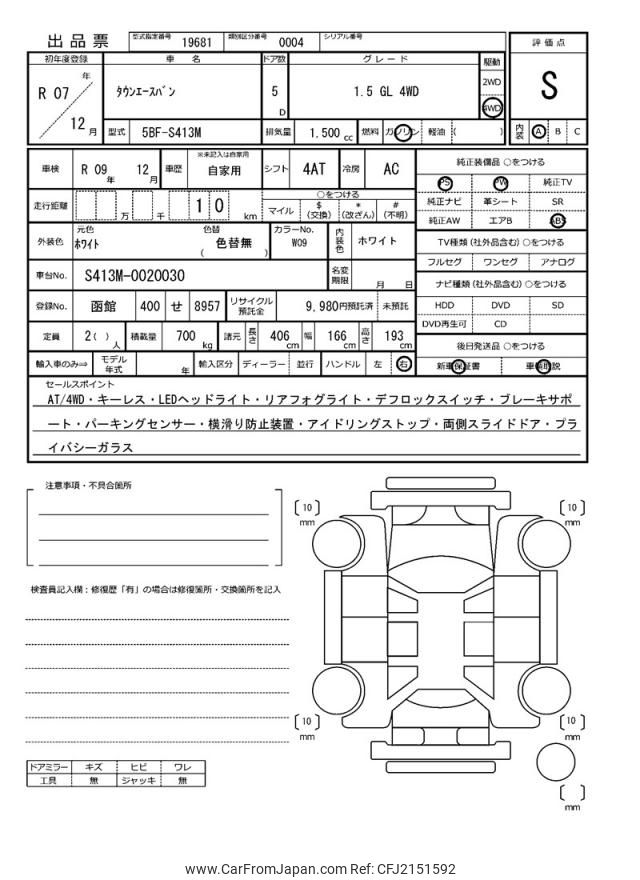 出品票 型式指定番号 19681 類別区分番号 0004 シリアル番号
初年度登録 車名 ドア数 グレード 駆動 評価点
R 07 年 12 月 タウンエースバン 5 D 1.5 GL 4WD 2WD 4WD S
型式 5BF-S413M 排気量 1.500 cc 燃料 ガソリン 軽油 ( ) 内装 A B C
車検 R 09 年 12 月 車歴 ※未記入は自家用 自家用 シフト 4AT 冷房 AC
純正装備品 ○をつける
PS PW 純正TV
純正ナビ 革シート SR
純正AW エアB ABS
走行距離 万 千 1 0 km ○をつける
マイル $ (交換) * (改ざん) # (不明)
外装色 元色 ホワイト 色替 色替無 ( ) カラーNo. W09 内装色 ホワイト
TV種類 (社外品含む) ○をつける
フルセグ ワンセグ アナログ
車台No. S413M-0020030 名変期限 月 日
ナビ種類 (社外品含む) ○をつける
HDD DVD SD
DVD再生可 CD
登録No. 函館 400 せ 8957 リサイクル預託金 9,980円預託済 未預託
定員 2( ) 人 積載量 700 kg 諸元 長さ 406 cm 幅 166 cm 高さ 193 cm
後日発送品 ○をつける
新車保証書 車輌取説
輸入車のみ⇒ モデル年式 年 輸入区分 ディーラー 並行 ハンドル 左 右
セールスポイント
AT/4WD・キーレス・LEDヘッドライト・リアフォグライト・デフロックスイッチ・ブレーキサポ
ート・パーキングセンサー・横滑り防止装置・アイドリングストップ・両側スライドドア・プラ
イバシーガラス
注意事項・不具合箇所
[ 10 ] mm
[ 10 ] mm
検査員記入欄：修復歴「有」の場合は修復箇所・交換箇所を記入
[ 10 ] mm
[ 10 ] mm
ドアミラー キズ ヒビ ワレ
工具 無 ジャッキ 無
[ ] mm
www.CarFromJapan.com Ref: CFJ2151592